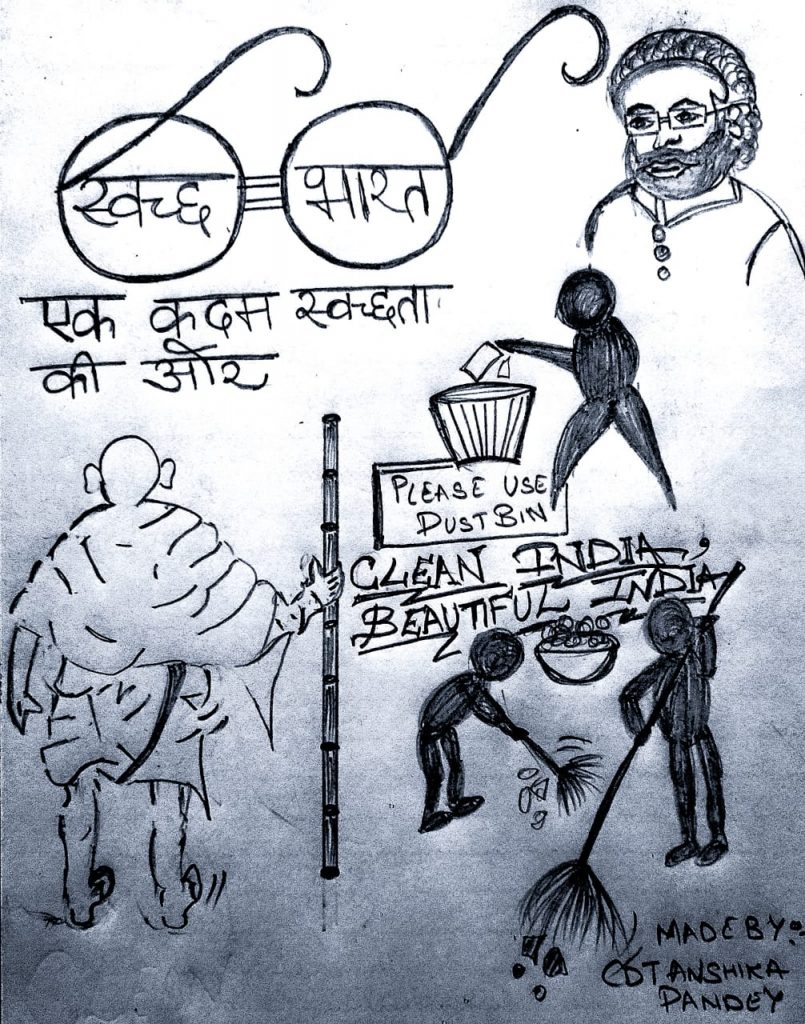 स्वच्छ भारत
एक कदम स्वच्छता
की ओर
PLEASE USE
DUSTBIN
CLEAN INDIA,
BEAUTIFUL INDIA
MADE BY:-
CDT ANSHIKA
PANDEY